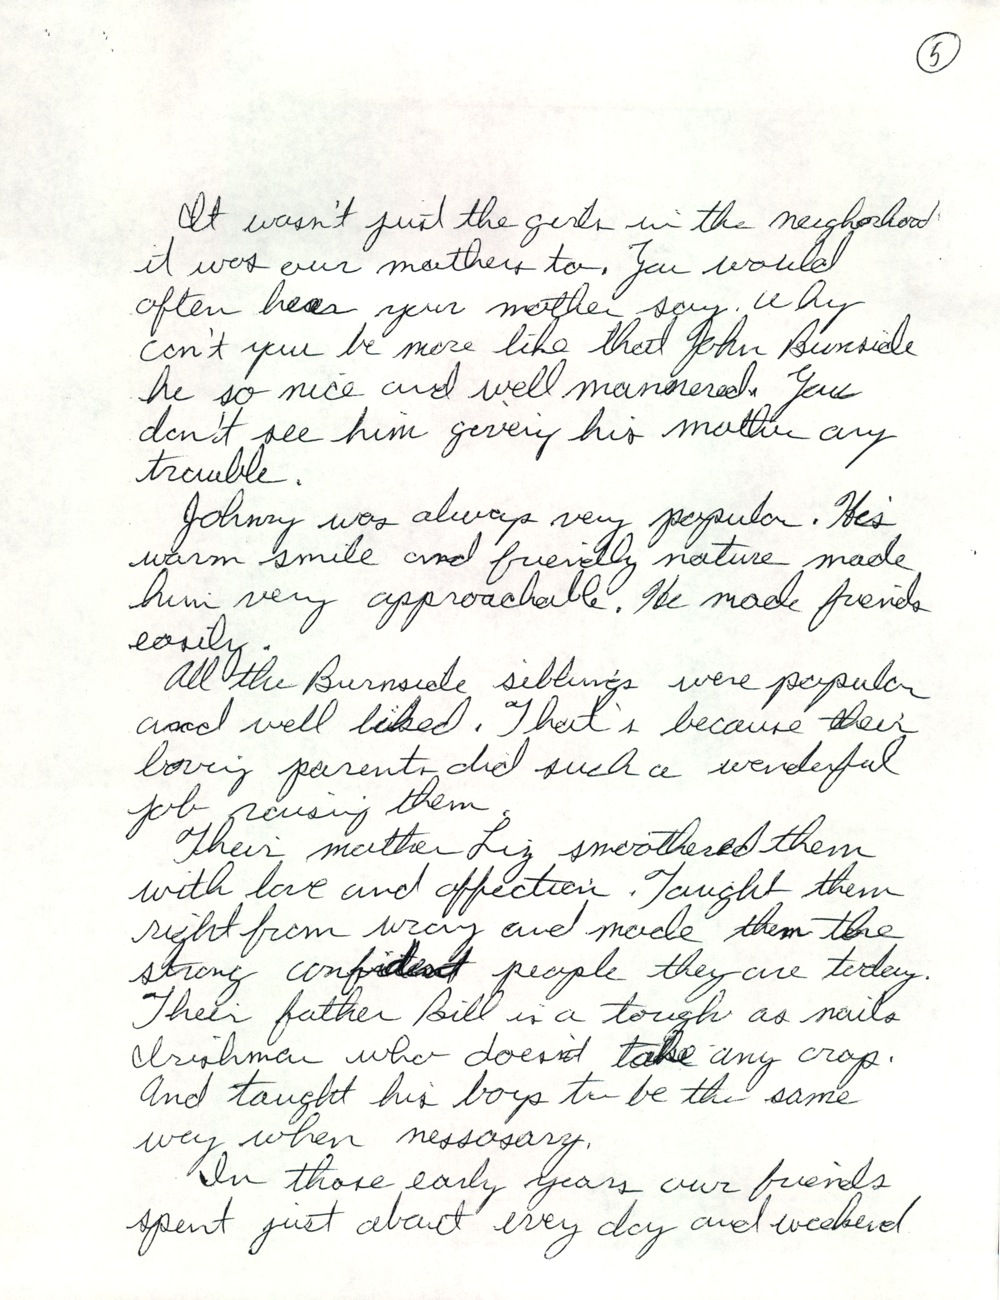 5
It wasn't just the girls in the neighorhood
it was our mothers to. You would
often hear your mother say. Why
can't you be more like that John Burnside
he so nice and well mannered. You
don't see him giveing his mother any
trouble.
Johnny was always very popular. His
warm smile and friendly nature made
him very approachable. He made friends
easily.
All the Burnside siblings were popular
and well liked. That's because their
loveing parents did such a wonderful
job raising them.
Their mother Liz smoothered them
with love and affection. Taught them
right from wrong and made them the
strong confident people they are today.
Their father Bill is a tough as nails
Irishman who doesn't take any crap.
And taught his boys to be the same
way when nessosary.
In those early years our friends
spent just about every day and weekend